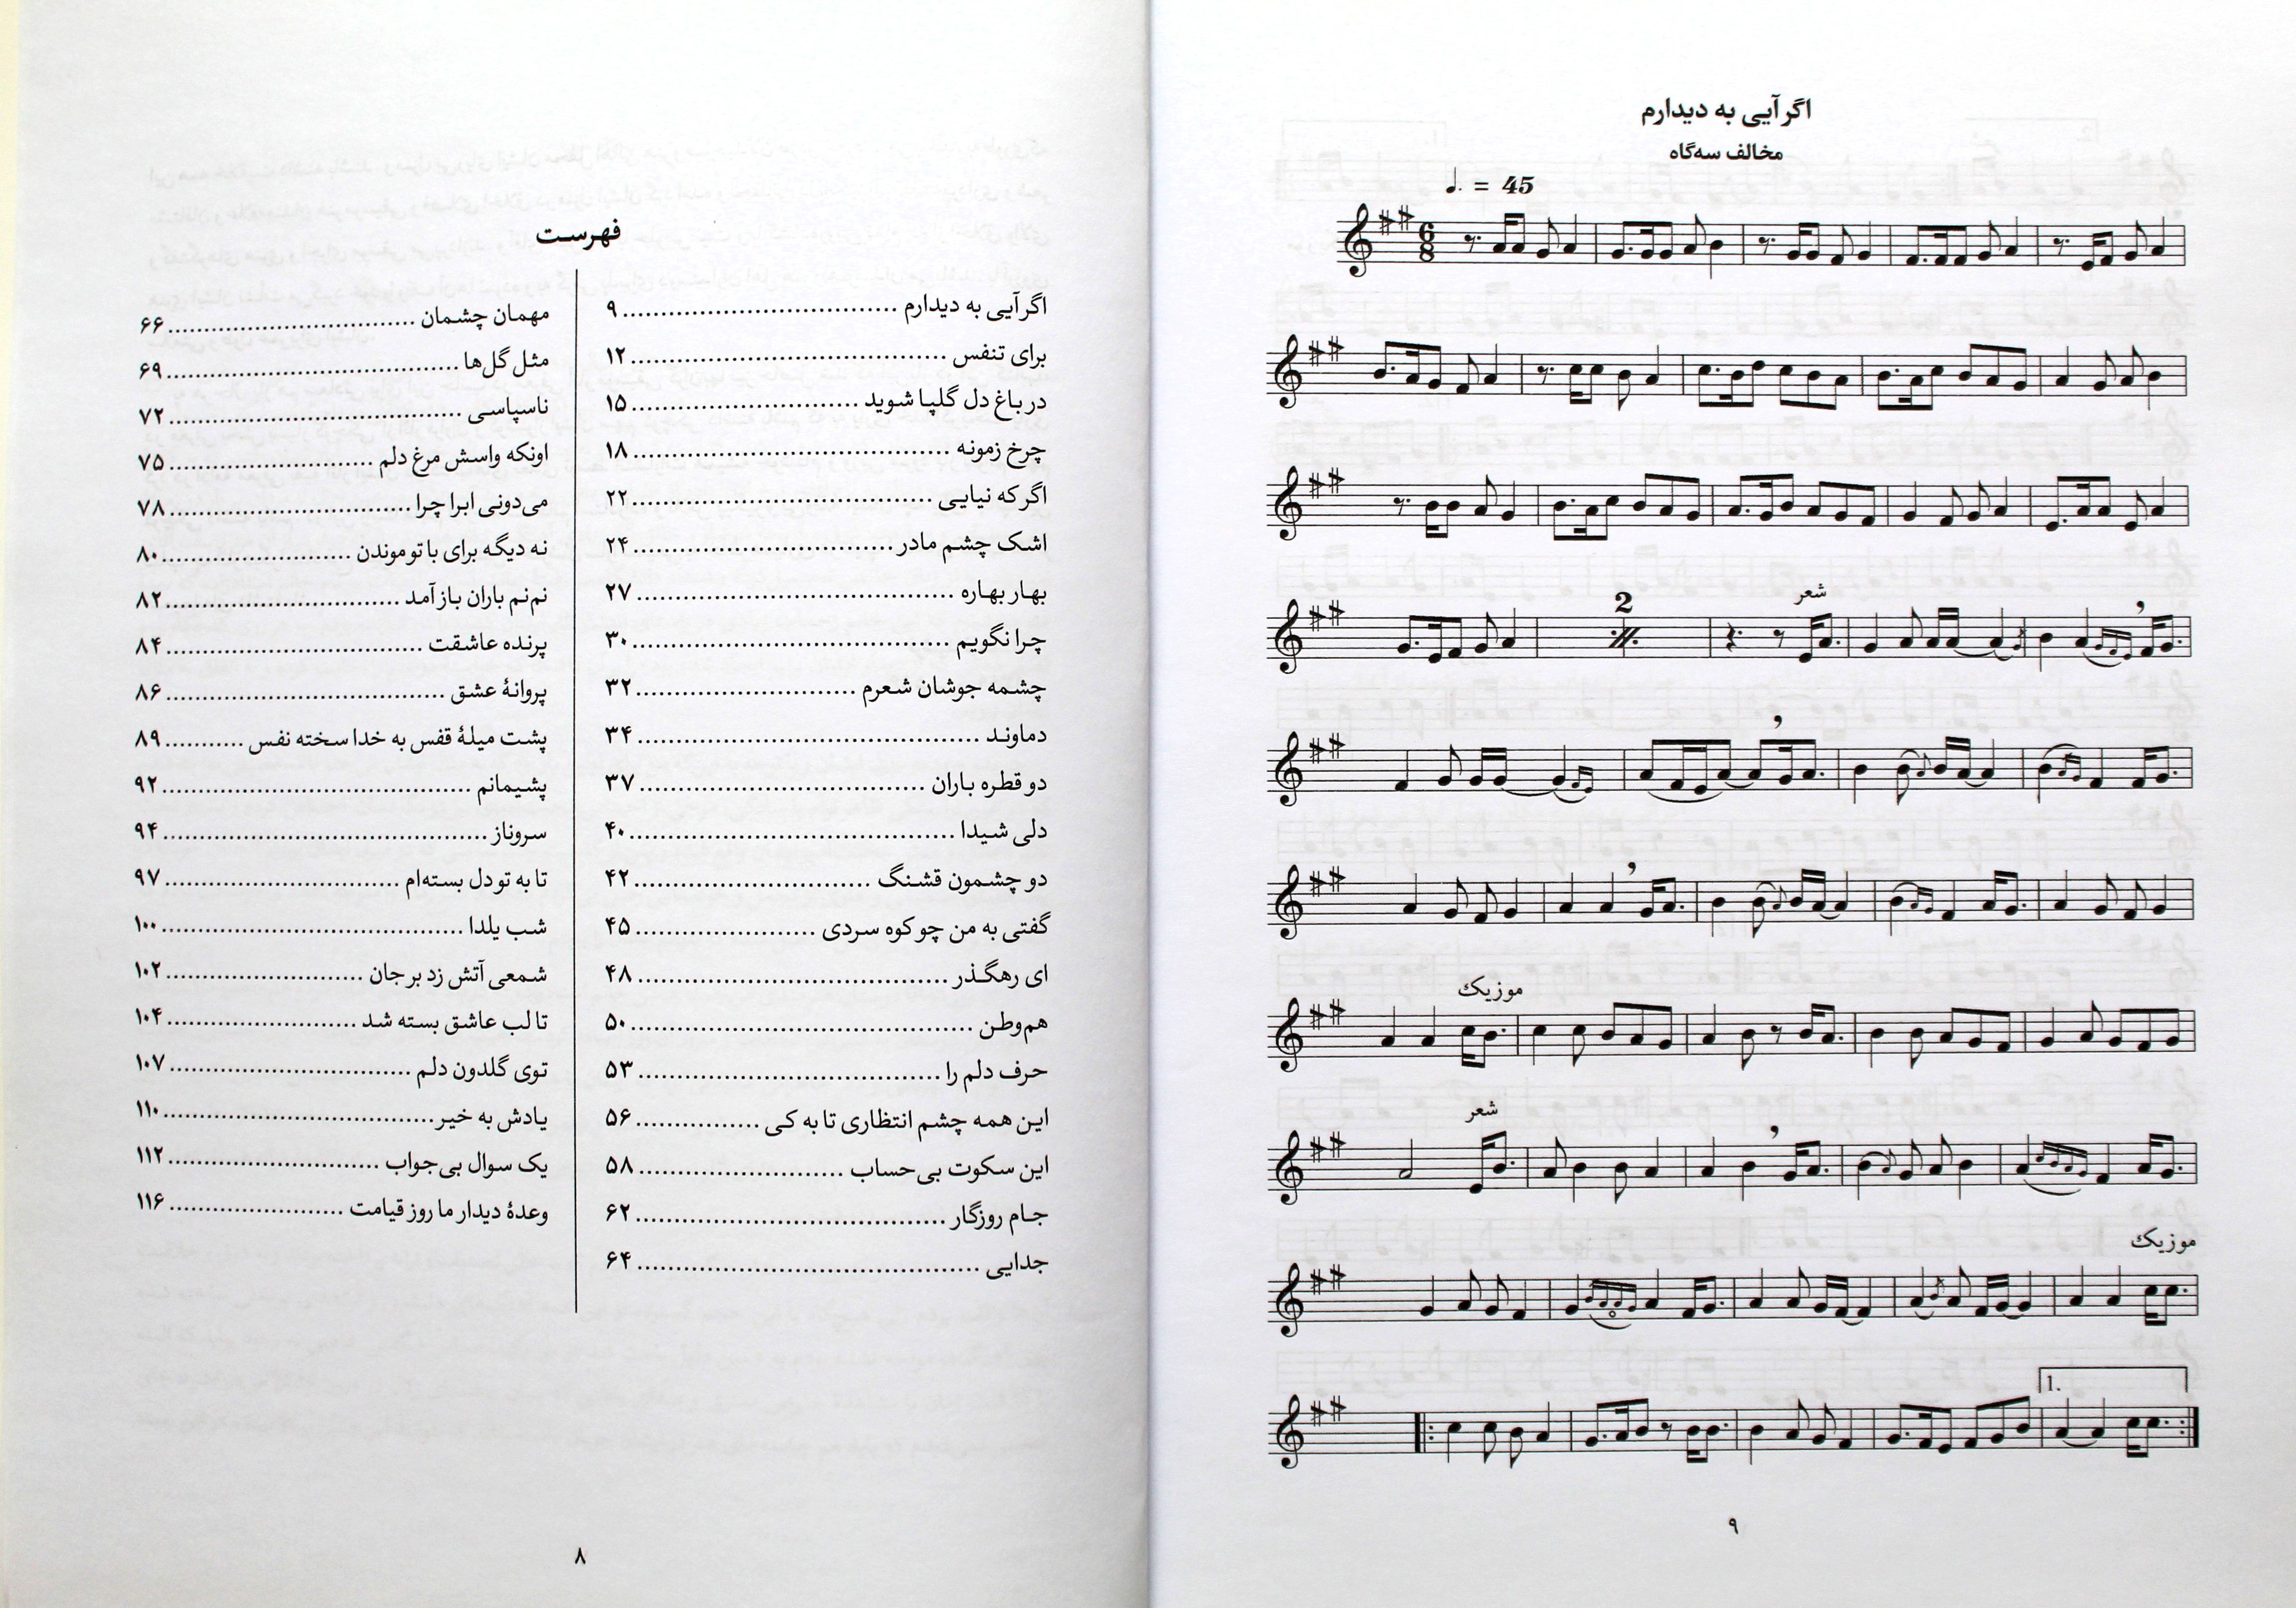 فهرست
اگر آیی به دیدارم ........ ۹
برای تنفس ........ ۱۲
در باغ دل گلپا شوید ........ ۱۵
چرخ زمونه ........ ۱۸
اگر که نیایی ........ ۲۲
اشک چشم مادر ........ ۲۴
بهار بهاره ........ ۲۷
چرا نگویم ........ ۳۰
چشمه جوشان شعرم ........ ۳۲
دماوند ........ ۳۴
دو قطره باران ........ ۳۷
دلی شیدا ........ ۴۰
دو چشمون قشنگ ........ ۴۲
گفتی به من چو کوه سردی ........ ۴۵
ای رهگذر ........ ۴۸
هم‌وطن ........ ۵۰
حرف دلم را ........ ۵۳
این همه چشم انتظاری تا به کی ........ ۵۶
این سکوت بی‌حساب ........ ۵۸
جام روزگار ........ ۶۲
جدایی ........ ۶۴
مهمان چشمان ........ ۶۶
مثل گل‌ها ........ ۶۹
ناسپاسی ........ ۷۲
اونکه واسش مرغ دلم ........ ۷۵
می‌دونی ابرا چرا ........ ۷۸
نه دیگه برای با تو موندن ........ ۸۰
نم‌نم باران باز آمد ........ ۸۲
پرنده عاشقت ........ ۸۴
پروانهٔ عشق ........ ۸۶
پشت میلهٔ قفس به خدا سخته نفس ........ ۸۹
پشیمانم ........ ۹۲
سروناز ........ ۹۴
تا به تو دل بسته‌ام ........ ۹۷
شب یلدا ........ ۱۰۰
شمعی آتش زد بر جان ........ ۱۰۲
تا لب عاشق بسته شد ........ ۱۰۴
توی گلدون دلم ........ ۱۰۷
یادش به خیر ........ ۱۱۰
یک سوال بی‌جواب ........ ۱۱۲
وعدهٔ دیدار ما روز قیامت ........ ۱۱۶
۸
اگر آیی به دیدارم
مخالف سه‌گاه
♩. = 45
6
8
2
شعر
موزیک
شعر
موزیک
1.
۹